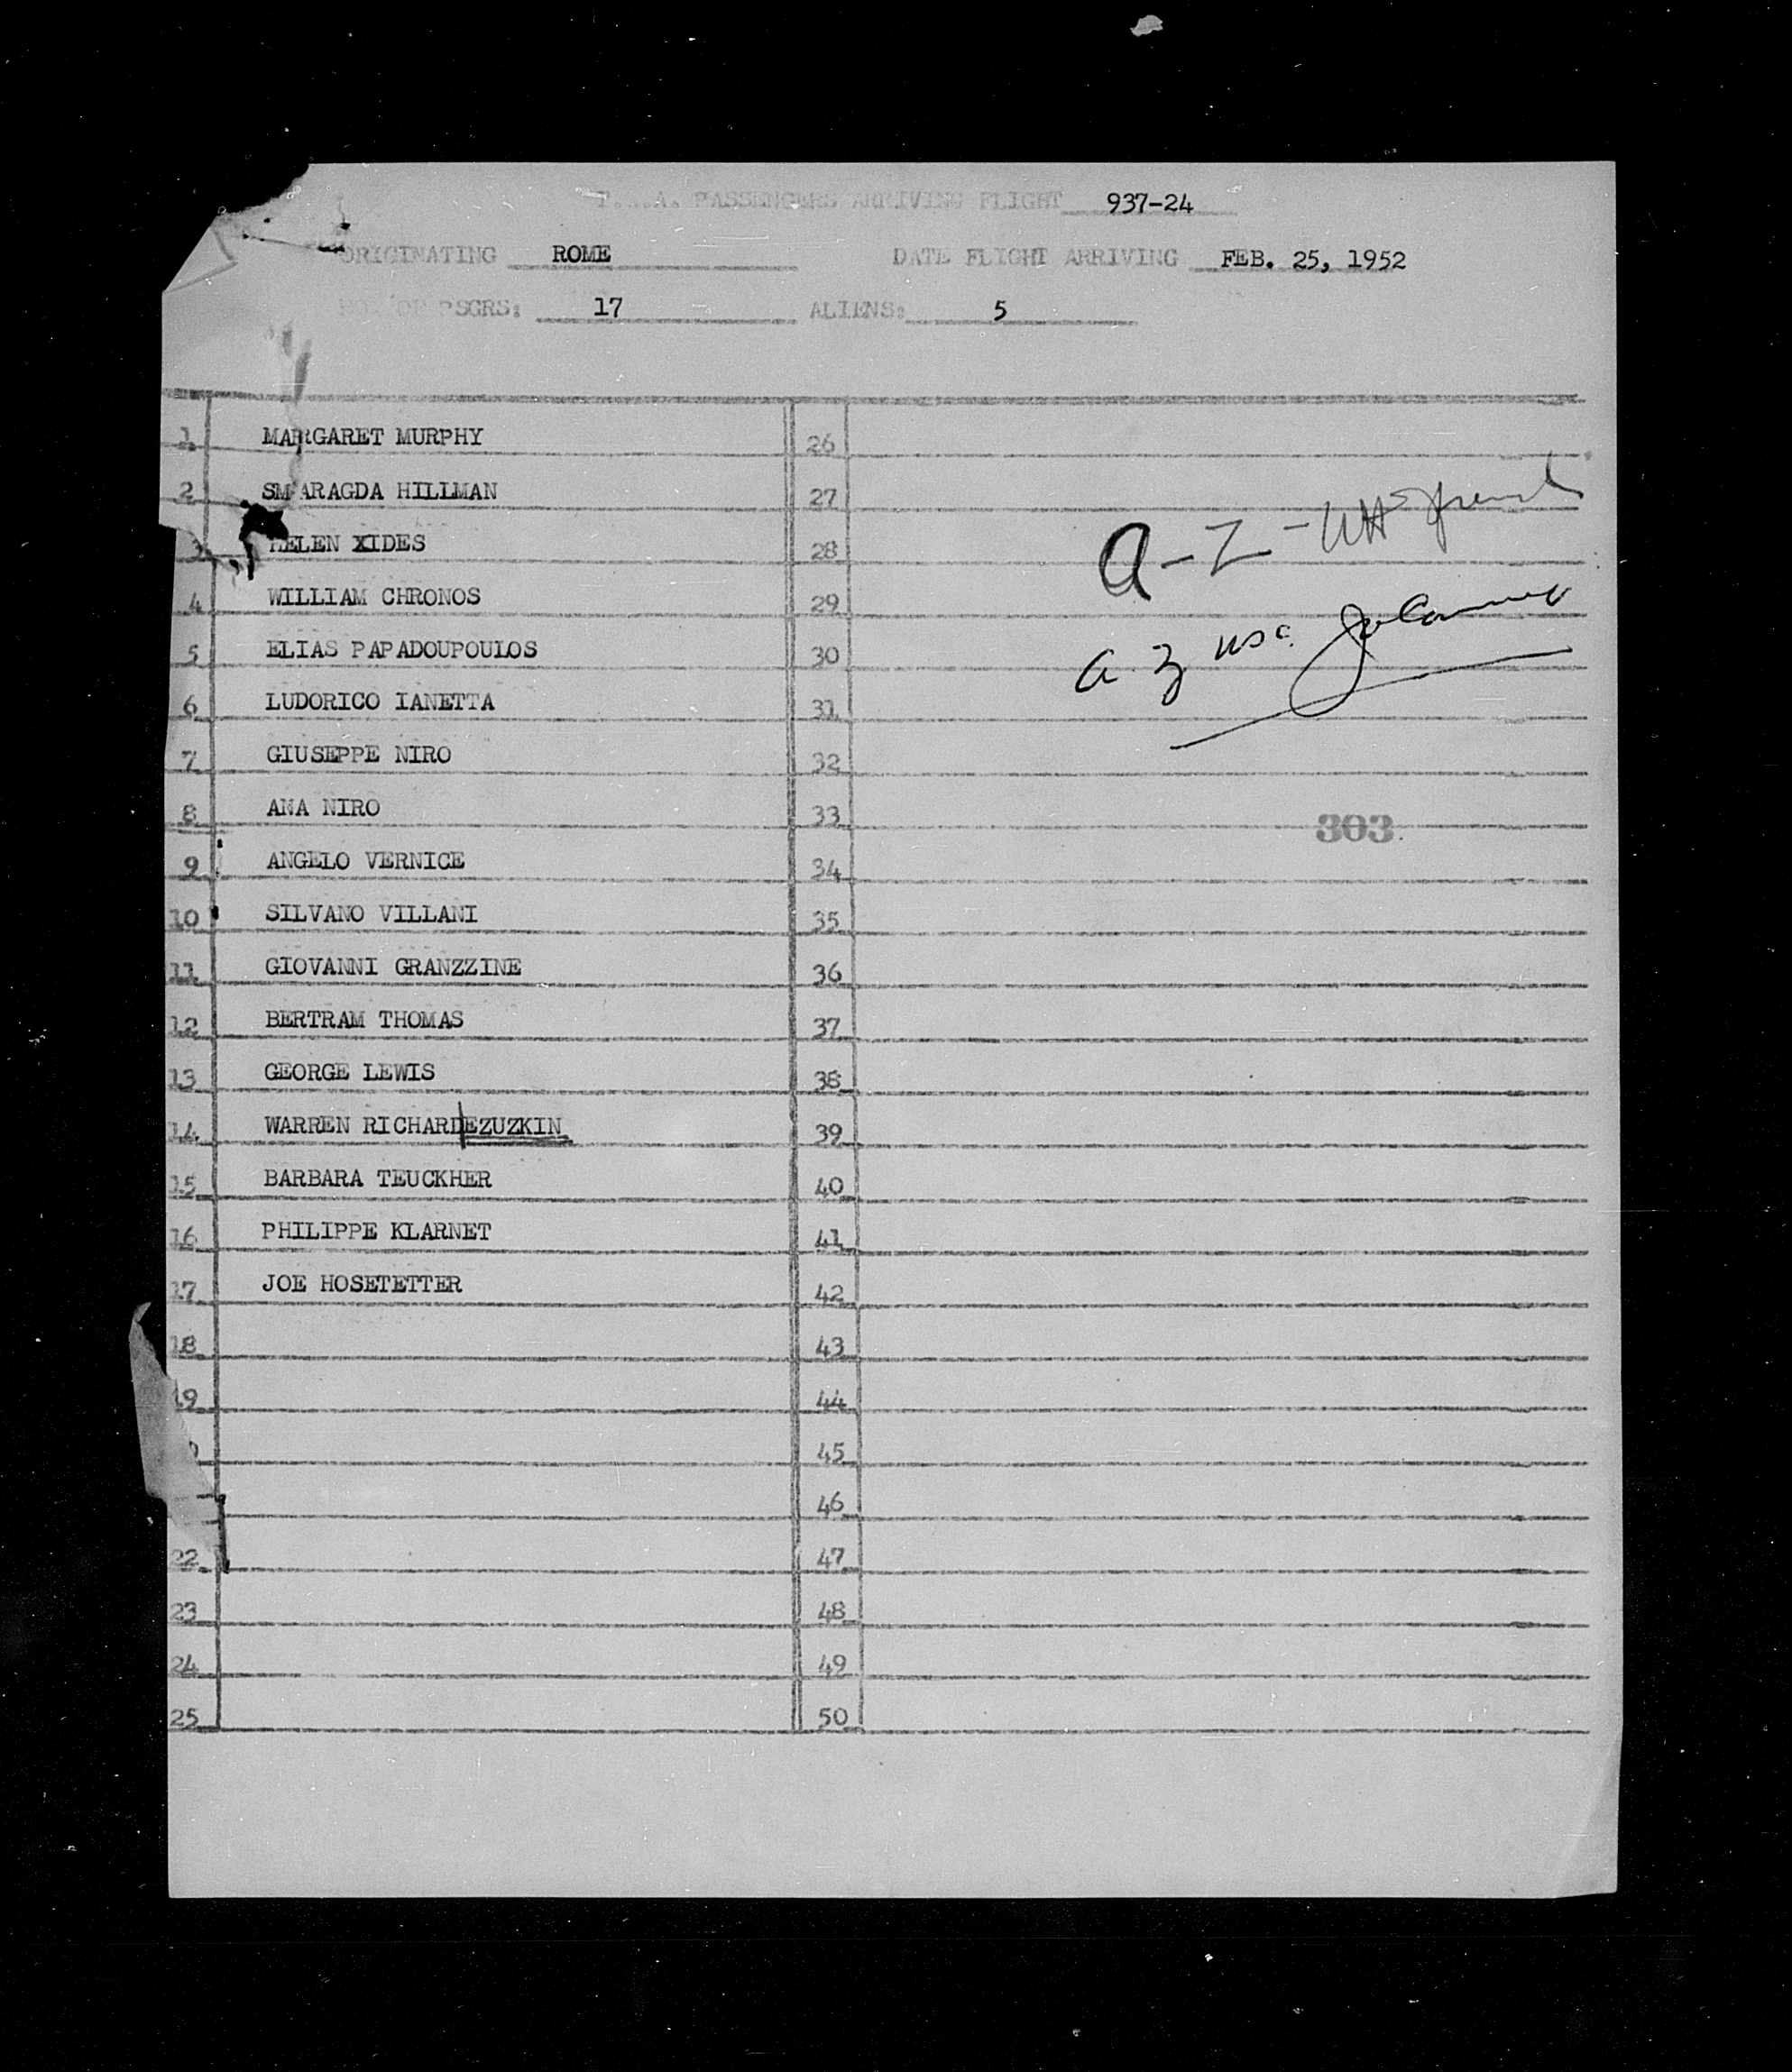 PASSENGERS ARRIVING FLIGHT 937-24
ORIGINATING ROME DATE FLIGHT ARRIVING FEB. 25, 1952
NO. OF PSGRS: 17 ALIENS: 5
1 MARGARET MURPHY 26
2 SMARAGDA HILLMAN 27
3 HELEN XIDES 28
4 WILLIAM CHRONOS 29
5 ELIAS PAPADOUPOULOS 30
6 LUDORICO IANETTA 31
7 GIUSEPPE NIRO 32
8 ANA NIRO 33
9 ANGELO VERNICE 34
10 SILVANO VILLANI 35
11 GIOVANNI GRANZZINE 36
12 BERTRAM THOMAS 37
13 GEORGE LEWIS 38
14 WARREN RICHARDEZUZKIN 39
15 BARBARA TEUCKHER 40
16 PHILIPPE KLARNET 41
17 JOE HOSETETTER 42
18 43
19 44
45
46
22 47
23 48
24 49
25 50
a-Z -
a. z usc.
303